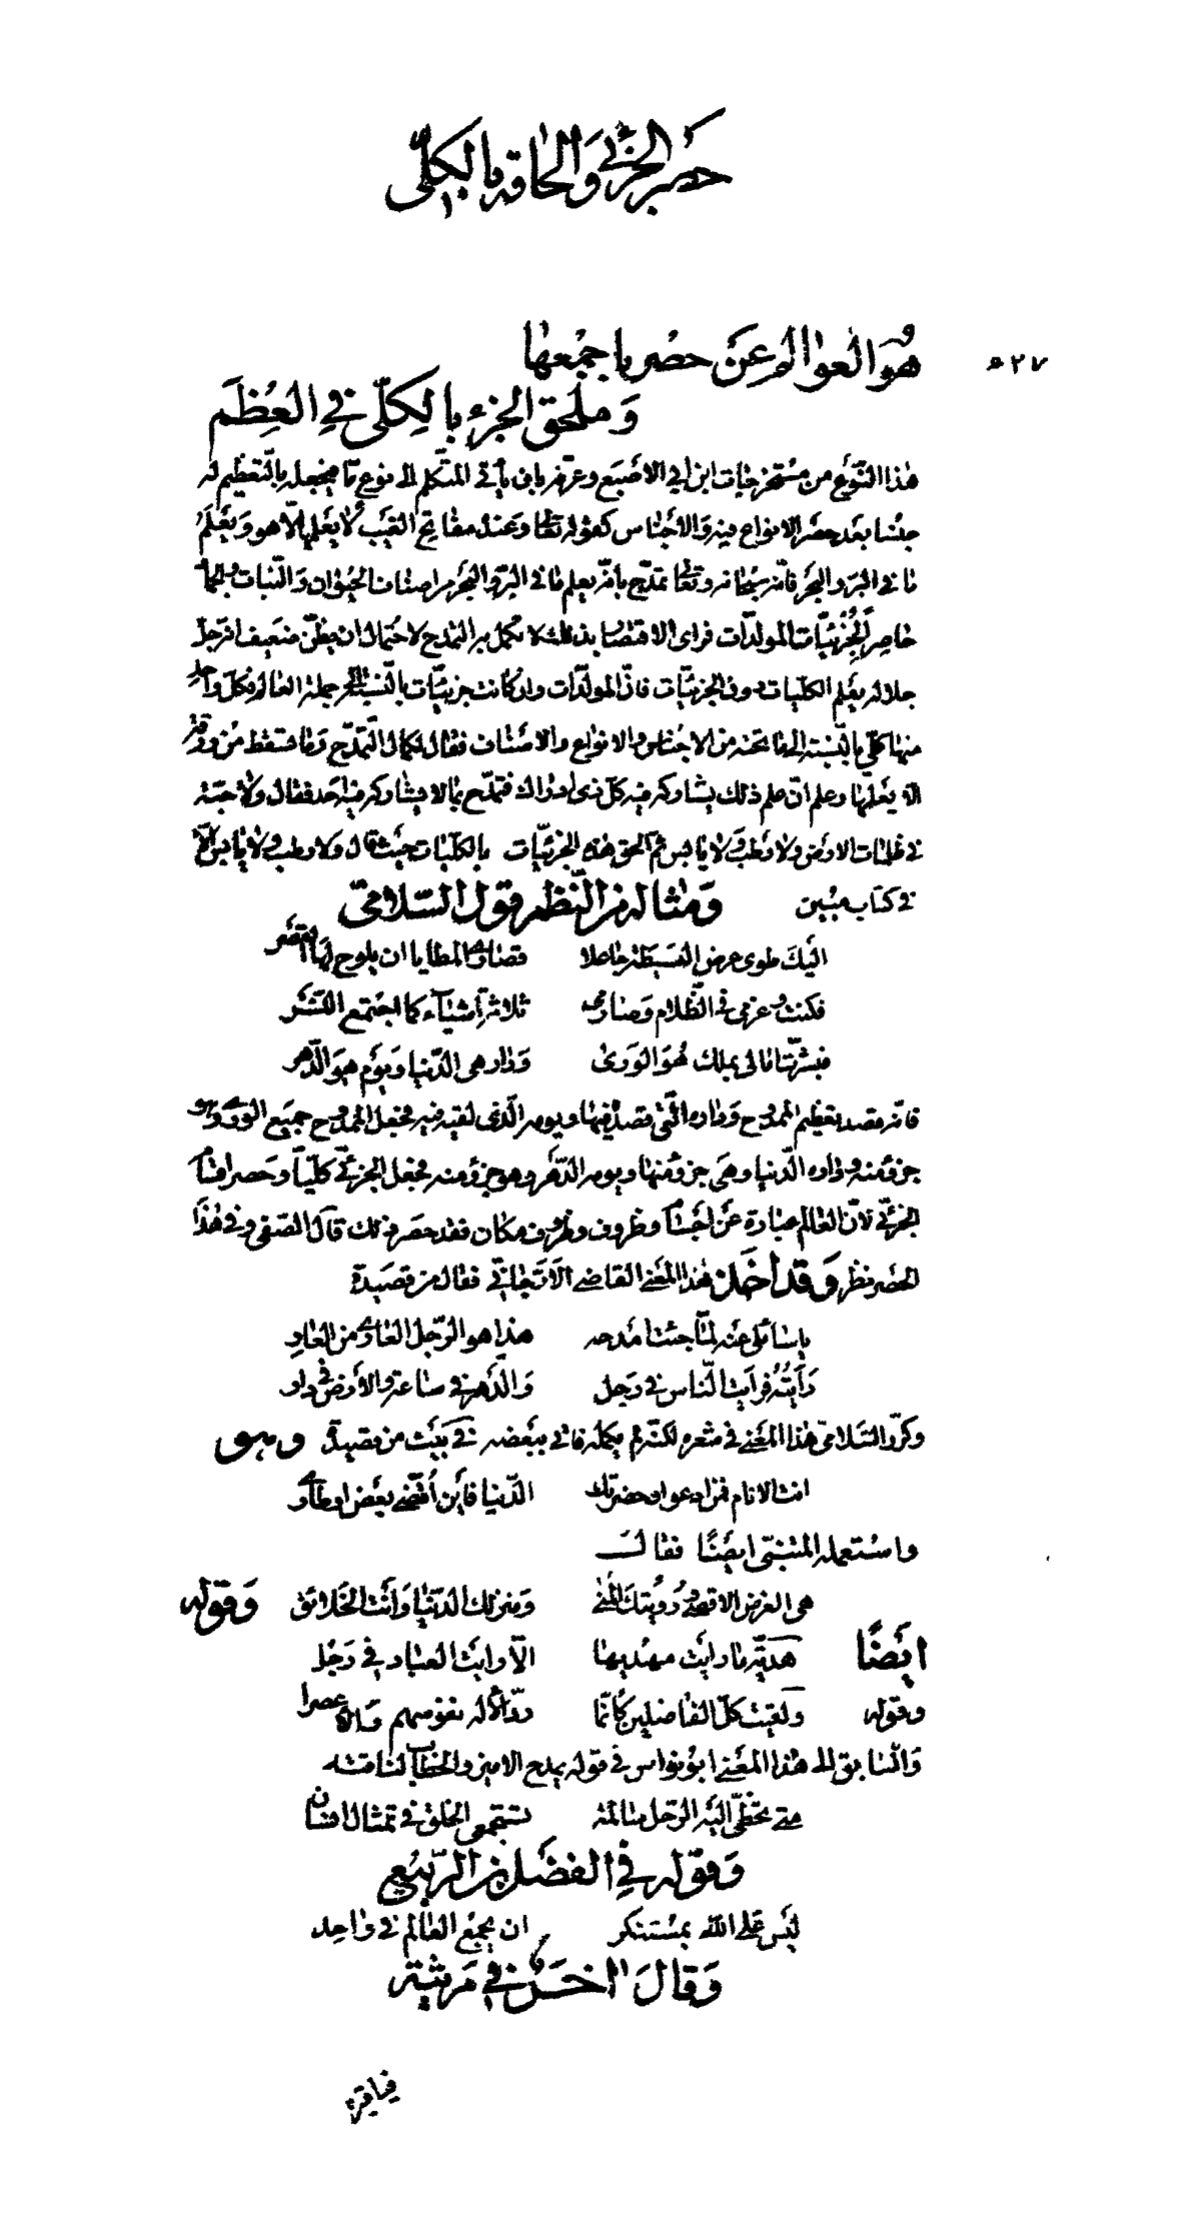 حصر الجزئي والحاقه بالكلّى
٥٢٧
هُوَ العوالم عَن حصر باجمعها
وَملحق الجزء بالكلّى في العِظَم
هٰذا النّوَع من مستخرجات ابن ابي الاصبع وعرّفه بان يأتى المتكلّم الى نوع مّا فيجعله بالتّعظيم له
جنسا بعد حصر الانواع منه والاجناس كقوله تعالى وعنده مفاتح الغيب لا يعلمها الّا هو ويعلم
ما في البرّ والبحر فانّه سبحانه وتعالى تمدّح بانّه يعلم ما في البرّ والبحر من اصناف الحيوان والنّبات والجماد
حاصر الجزئيّات المولدّات فراى الاقتصار بذلك لا يكمل به التمدّح لاحتمال ان يظنّ ضعيف انّه جل
جلاله يعلم الكلّيات دون الجزئيّات فانّ المولدّات وان كانت جزئيّات بالنّسبة الى جملة العالم فكلّ واحد
منها كلّي بالنّسبة الى ما تحته من الاجناس والانواع والاصناف فقال لكمال التّمدّح وما تسقط من ورقة
الّا يعلمها وعلم انّ علم ذلك يشاركه فيه كلّ ذى ادراك فتمدّح بما لا يشاركه فيه احد فقال ولا حبّة
في ظلمات الارض ولا رطب ولا يابس ثمّ الحق هذه الجزئيّات بالكلّيات حيث قال ولا رطب ولا يابس الّا
في كتاب مبين وَمثاله من النّظم قول السّلامىّ
اليك طوى عرض البسيطة جاعلا قصارى المطايا ان يلوح لها القصر
فكنت وعزمى في الظّلام وصارمى ثلاثة اشيآء كما اجتمع النّسر
فبشّرت امالى بملك هو الورى ودار هى الدّنيا ويوم هو الدّهر
فانّه قصد تعظيم الممدوح وداره الّتى قصده فيها ويومه الّذى لقيه فيه فجعل الممدوح جميع الورى وهو
جزؤ منه وداره الدّنيا وهى جزؤ منها ويومه الدّهر وهو جزؤ منه فجعل الجزئىّ كلّيا وحصر اقسام
الجزئىّ لانّ العالم عبارة عن اجسام وظروف زمان وظروف مكان فقد حصر ذلك قال الصّفى وفي هٰذا
الحصر نظر وَقد اخذ هٰذا المعنى القاضى الارّجانى فقال من قصيدة
يا سائلى عنه لمّا جئت امدحه هذا هو الرّجل العارى من العار
رأيته فرايت النّاس في رجل والدّهر في ساعة والارض في دار
وكرّر السّلامىّ هٰذا المعنى في شعره لكنّه لم يكمله فاتى ببعضه في بيت من قصيدة وهو
انت الانام فمن ادعو وحضرتك الدّنيا فاين أقضّى بعض اوطارى
واستعمله المتنبّى ايضًا فقال
هى الغرض الاقصى ورؤيتك المنى ومنزلك الدّنيا وأنت الخلائق وَقوله
ايضًا هديّة ما رايت مهديها الّا رايت العباد في رجل
وقوله ولقيت كلّ الفاضلين كأنّما ردّ الاله نفوسهم والاعصرا
والسّابق الى هٰذا المعنى ابو نواس في قوله يمدح الامين والخطاب لناقته
متى تحطّى اليه الرّحل سالمة تستجمعى الخلق في تمثال انسان
وَقوله في الفضل بن الرّبيع
ليس على الله بمستنكر ان يجمع العالم في واحد
وَقال اخر في مرثية
فياقبر